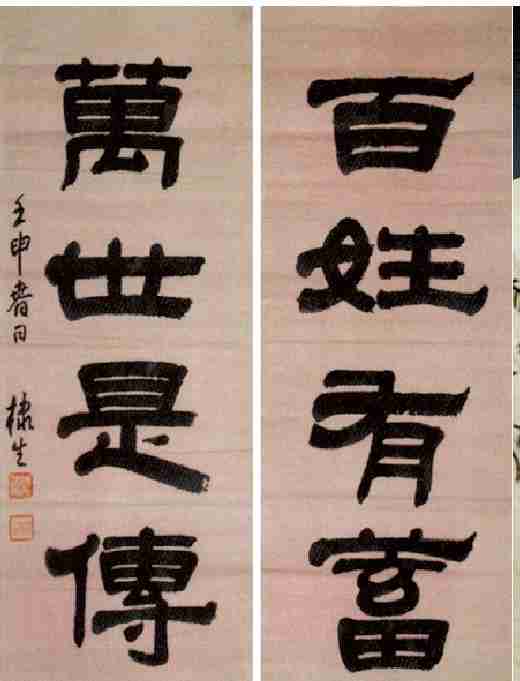 百姓有蓄
萬世是傳
壬申春日 棣生